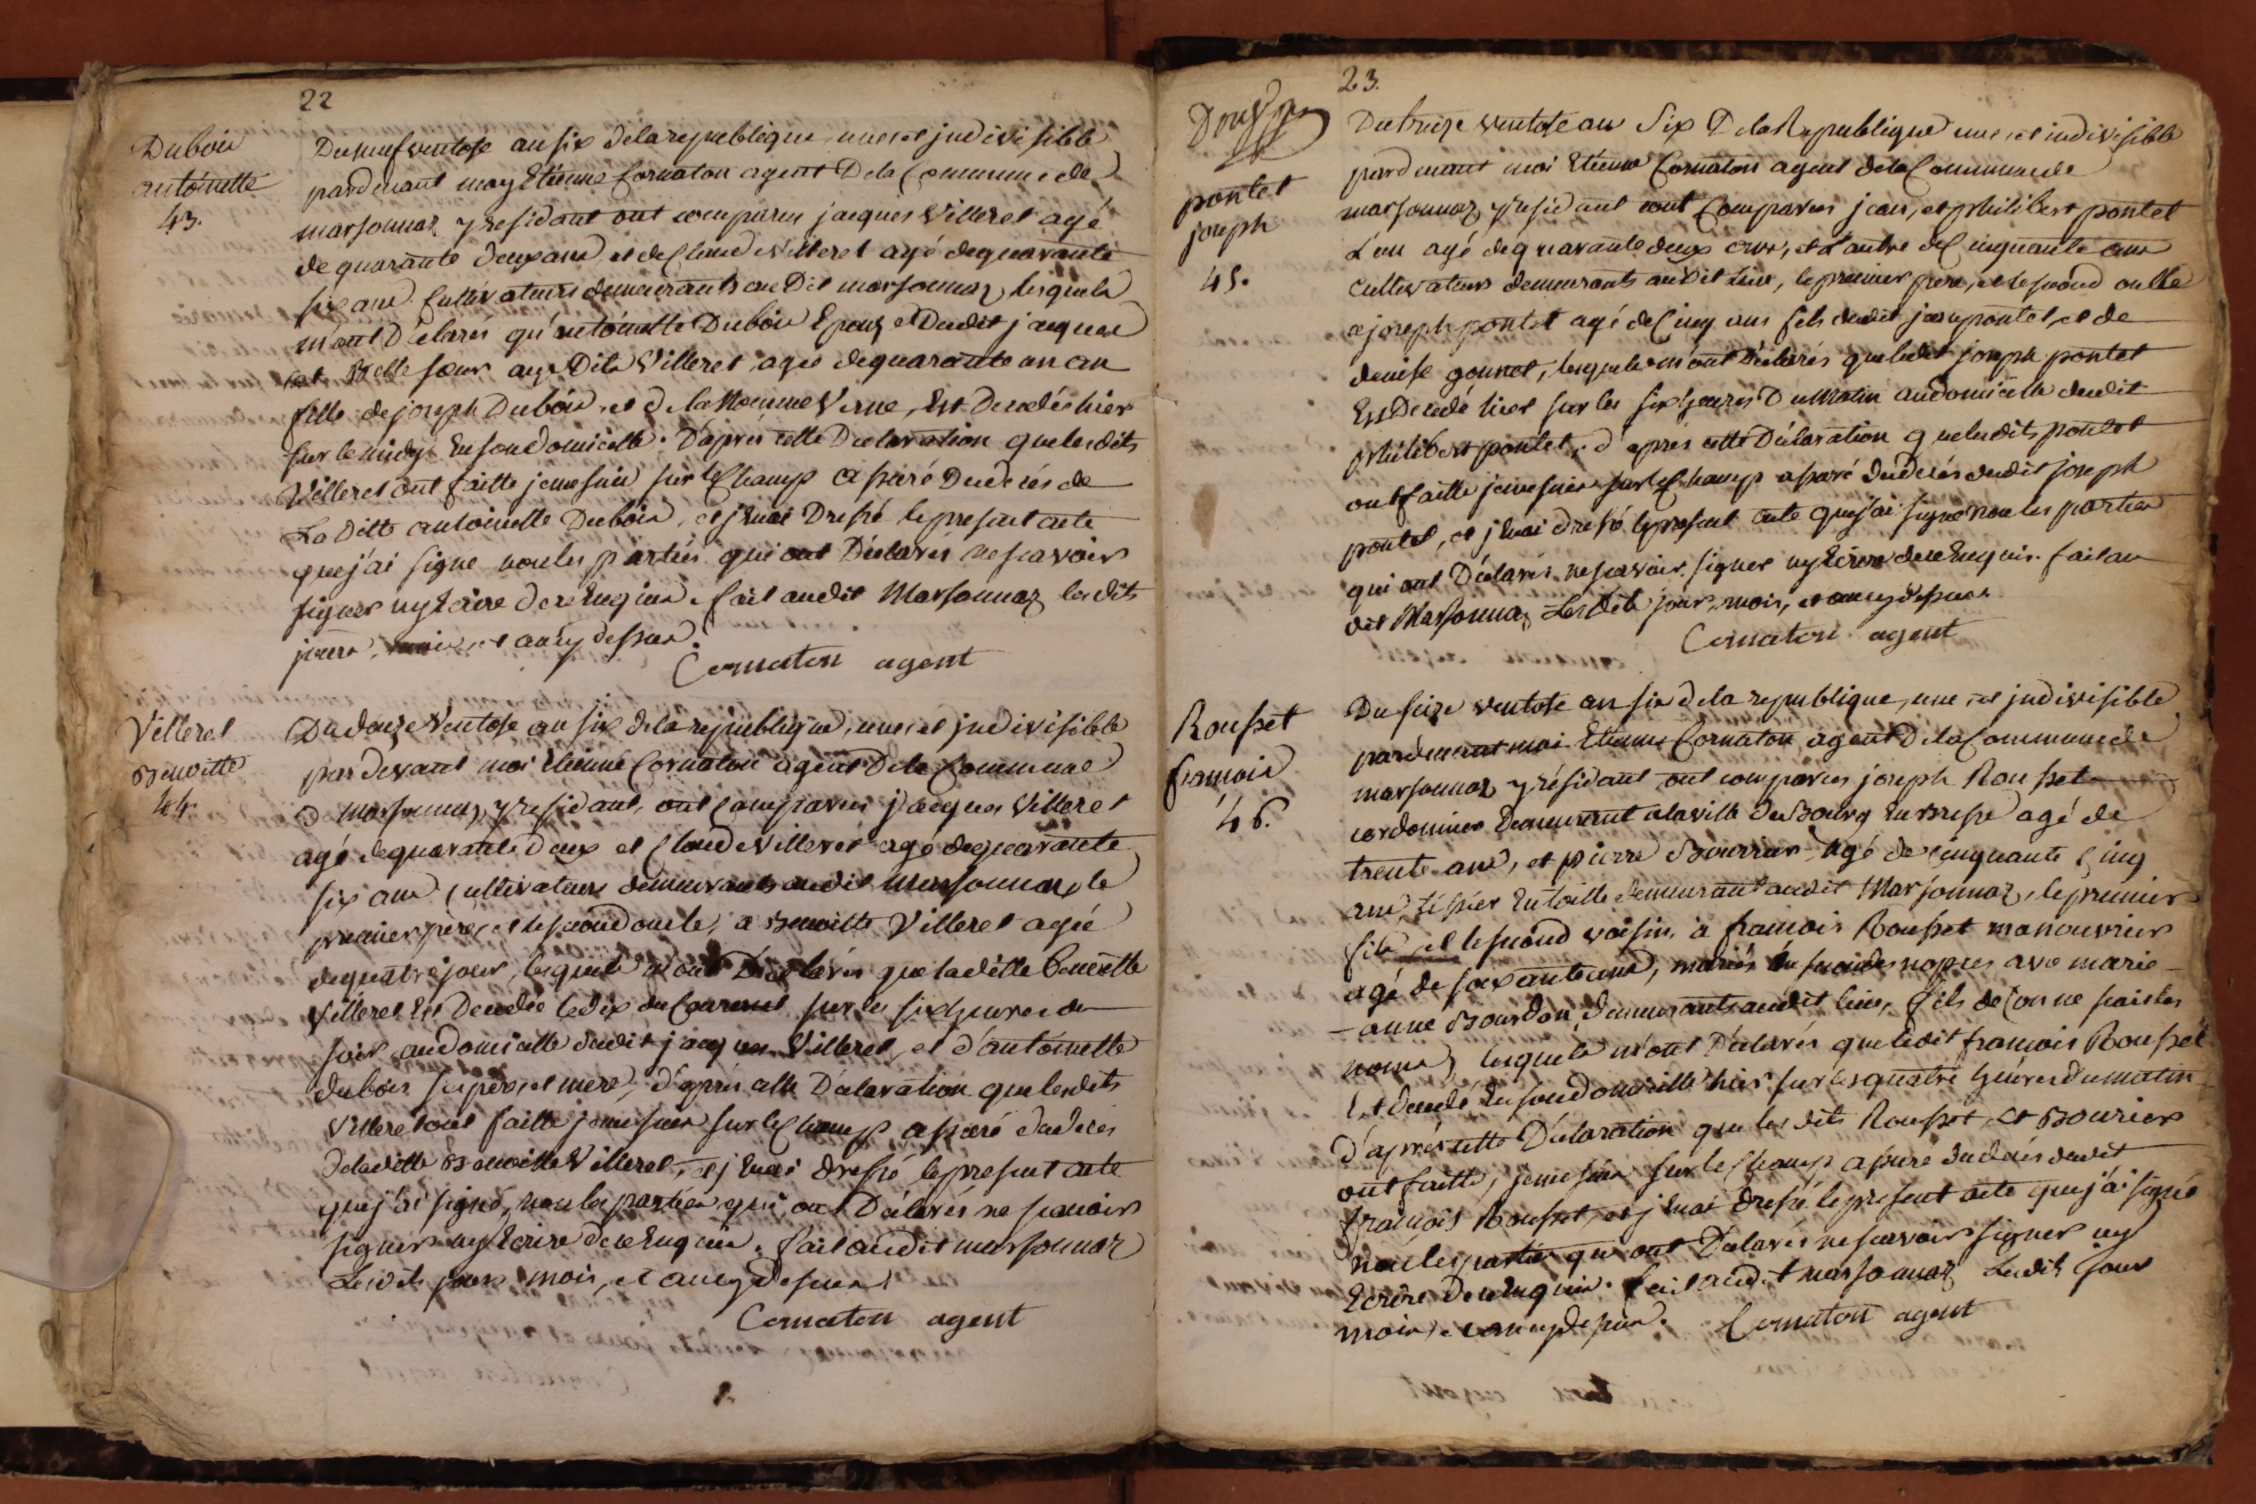 22
Dubois
antoinette
43.
Du neuf ventose an six de la republique une et indivisible
pardevant moy Etienne Cornaton agent De la Commune de
marsonnaz y residant ont comparus jacques Villeret agé
de quarante deux ans et de Claude Villeret agé de quarante
six ans Cultivateurs demeurants au Dit marsonnaz, lesquels
m'ont Déclarés qu'antoinette Dubois Epouze Dudit jacques
et Belle sœur aux Dits Villeret agée de quarante un an
fille de joseph Dubois, et de la Nomme Verne, Est Decedée hier
sur le midy En son Domicille. D'après cette Declaration que lesdits
Villeret ont faitte je me suis sur le Champ assuré Du decés de
La Ditte antoinette Dubois, et j'enai Dressé le present acte
que j'ai signé non les parties qui ont Déclarés ne scavoir
signer ny Ecrire De ce Enquis. fait au dit Marsonnaz lesdits
jours, mois, et an cy dessus.
Cornaton agent
Villeret
Benoitte
44.
Du douze Ventose an six de la republique, une et indivisible
par devant moi Etienne Cornaton agent De la Commune
De Marsonnaz, y residant, ont comparus jacques Villeret
agé de quarante Deux et Claude Villeret agé de quarante
six ans Cultivateurs demeurants audit Marsonnaz, le
premier pere, et le second oncle, a Benoitte Villeret agée
de quatre jours, lesquels m'ont Déclarés que ladille Benoitte
Villeret Est Decedée le dix du Courant sur les six heures du
soir au domicille dudit jacques Villeret, et d'antoinette
dubois ses pere, et mere, d'après cette Déclaration que lesdits
Villeret ont faitte je me suis sur le Champ assuré du decés
de laditte Benoitte Villeret, et j'enai dressé le present acte
que j'ai signé, non les parties qui ont Déclarés ne scavoir
signer ny Ecrire de ce Enquis. fait audit marsonnaz
Lesdits jours mois, et an cy Dessus.
Cornaton agent
23.
pontet
joseph
45.
Du treize ventose an Six De la Republique une et indivisible
pardevant moi Etienne Cornaton agent de la Commune de
marsonnaz, y residant ont Comparus jean, et philibert pontet
L'un agé de quarante deux ans, et L'autre de Cinquante ans
Cultivateurs demeurants audit Lieu, le premier pere, et le second oncle
a joseph pontet agé de Cinq ans fils dudit jean pontet, et de
denise gonnet, lesquels m'ont Déclarés que ledit joseph pontet
Est Decedé hier sur les six heures Du Matin au domicille dudit
philibert pontet, d'après cette Déclaration que lesdits pontet
ont faitte je me suis sur le Champ assuré du decés dudit joseph
pontet, et j'enai dressé le present acte que j'ai signé non les parties
qui ont Déclarés ne scavoir signer ny Ecrire de ce Enquis. fait au
dit Marsonnaz Lesdits jour, mois, et an cy dessus.
Cornaton agent
Rousset
francois
46.
Du seize ventose an six de la republique, une, et indivisible
pardevant moi Etienne Cornaton agent De la Commune de
marsonnaz y résidant ont comparus joseph Rousset
cordonnier Demeurant a la ville De Bourg En Bresse agé de
trente ans, et pierre Bourrier agé de cinquante Cinq
ans, tissier En toille demeurant audit Marsonnaz, le premier
fils et le second voisin, à francois Rousset manouvrier
agé de soixante ans, marié En secondes nopces avec marie
anne Bourdon, demeurants audit lieu, fils de L'on ne scait les
noms, lesquels m'ont Déclarés que ledit francois Rousset
Est decedé En son domicille hier sur les quatre heures du matin
D'après cette Déclaration que les dits Rousset et Bourier
ont faitte, je me suis sur le Champ assuré du decés dudit
francois Rousset, et j'enai dressé le present acte que j'ai signé
non les parties qui ont Déclarés ne scavoir signer ny
Ecrire De ce Enquis. fait audit marsonnaz Lesdits jour
mois, et an cy dessus.
Cornaton agent